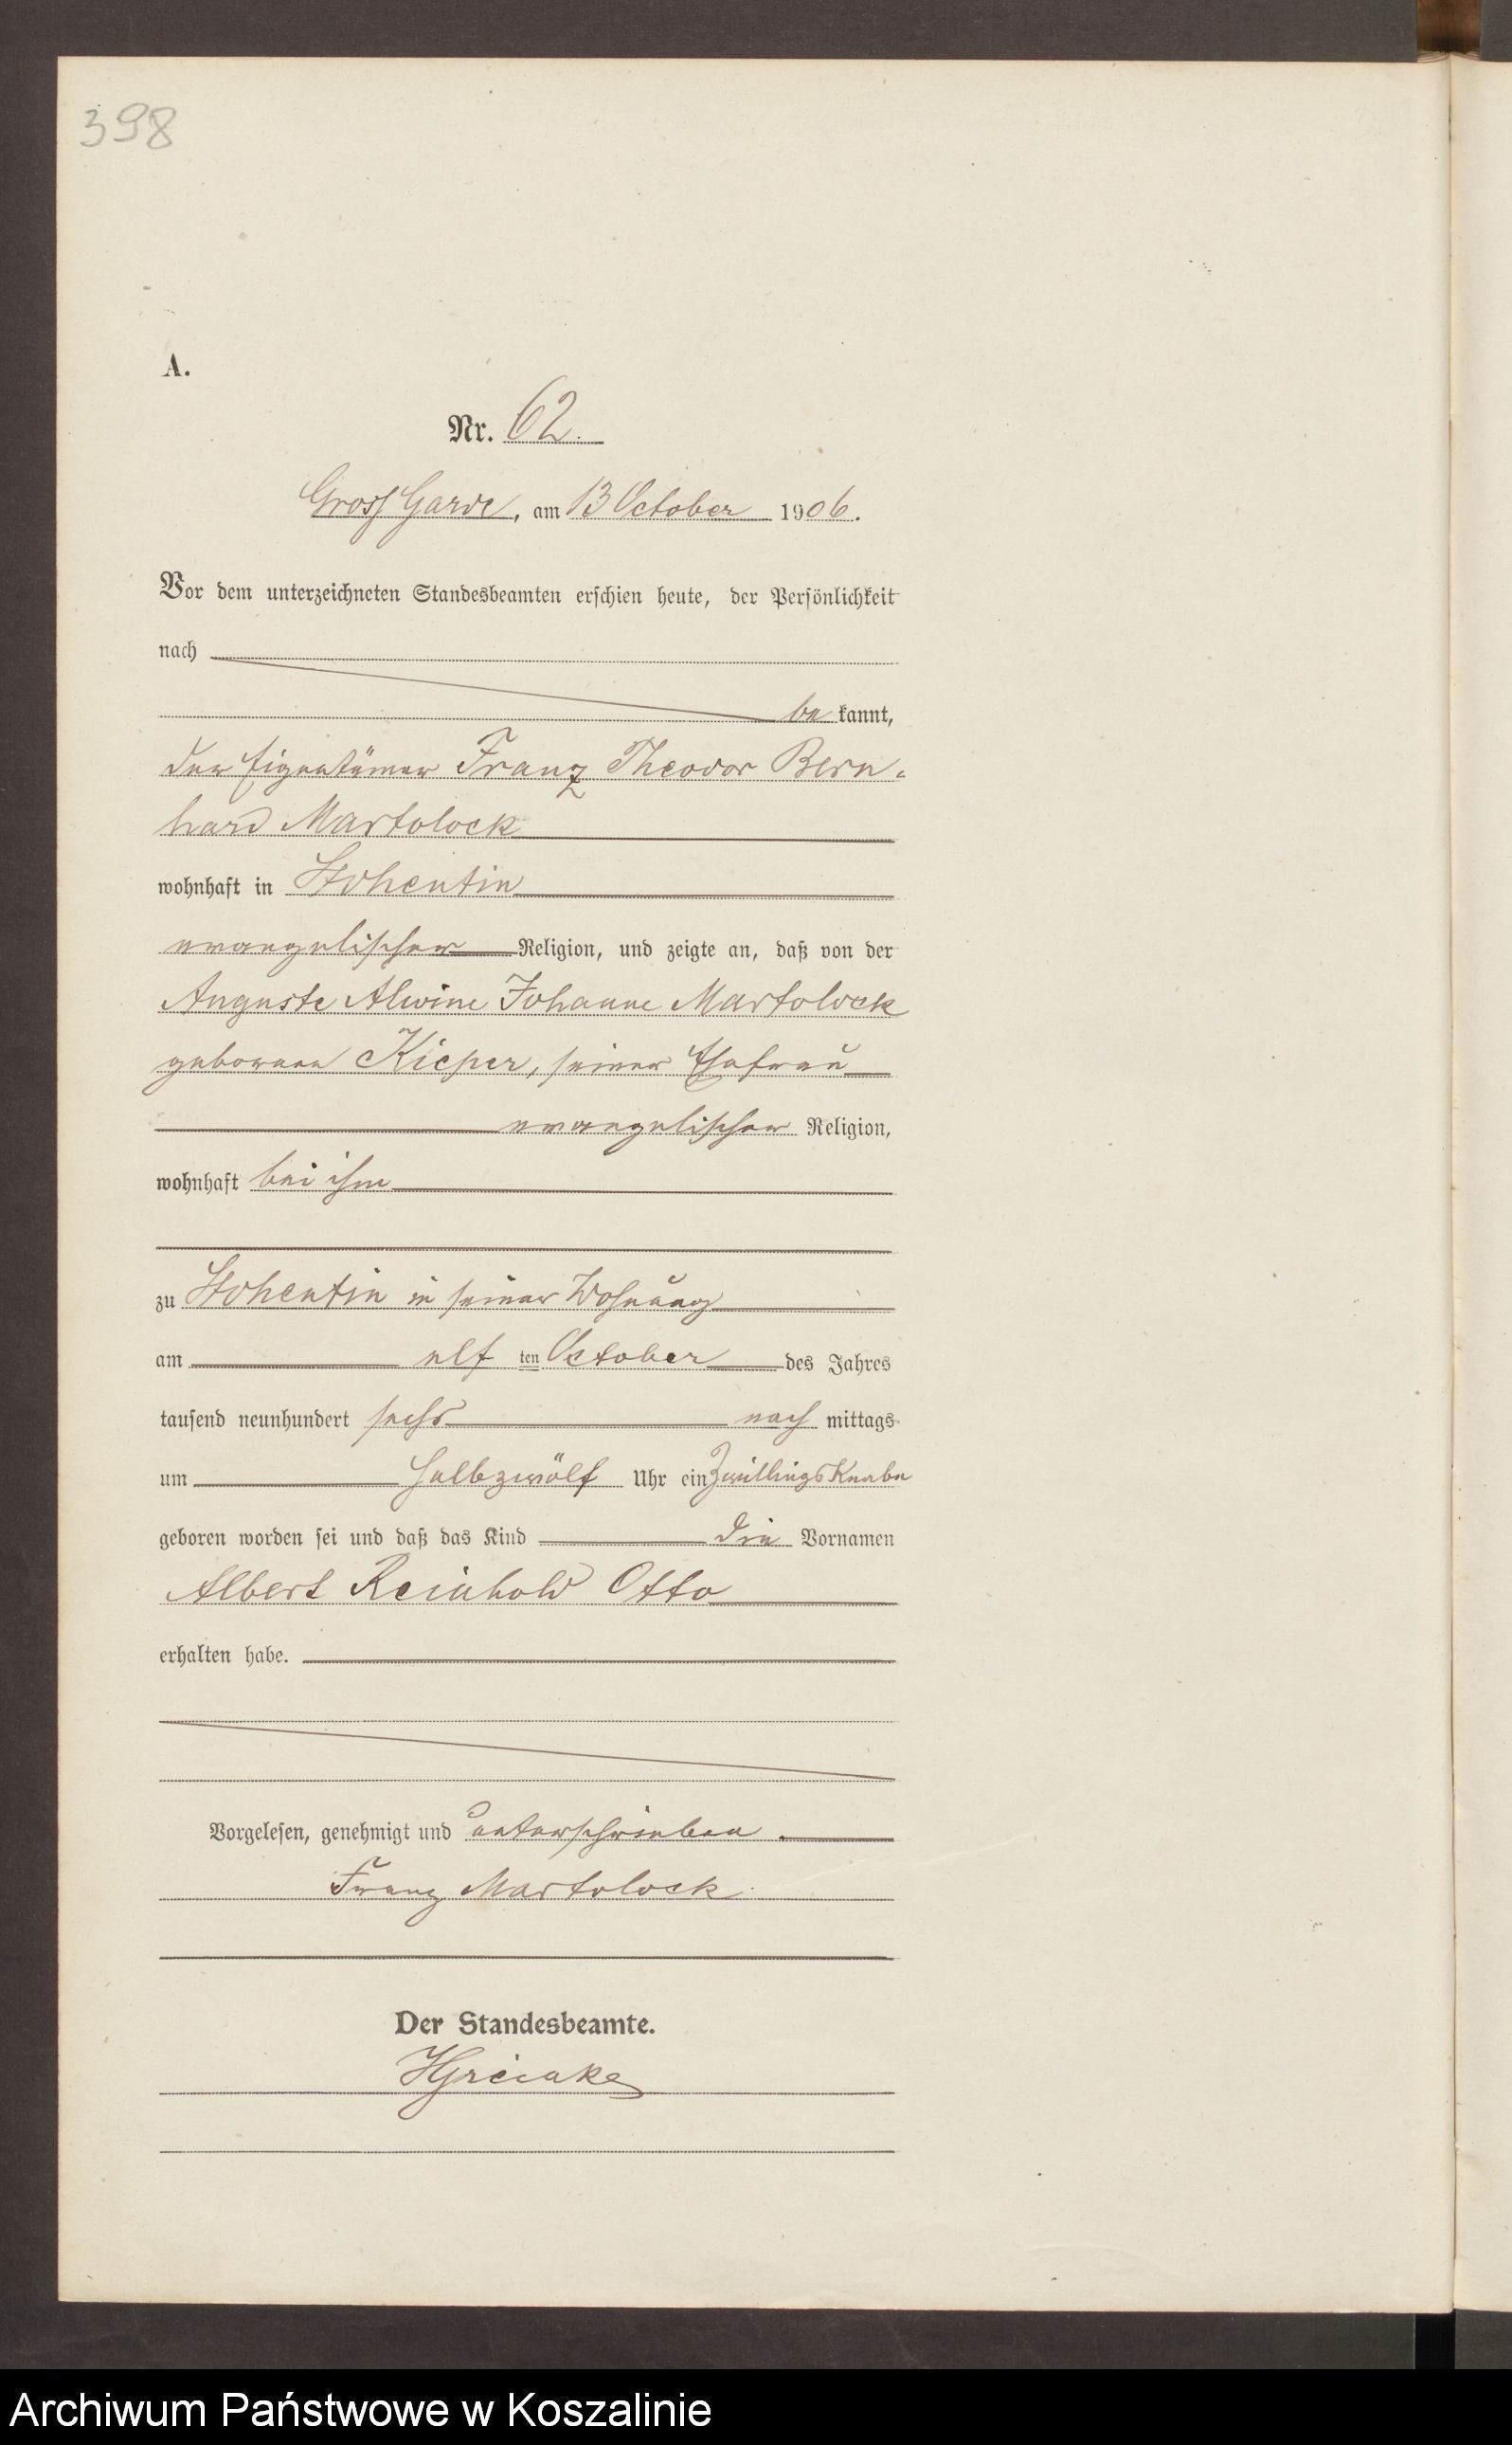 398
A.
Nr. 62.
Gross Garde, am 13 October 1906.
Vor dem unterzeichneten Standesbeamten erschien heute, der Persönlichkeit
nach
be kannt,
der Eigentümer Franz Theodor Bern-
hard Martolock
wohnhaft in Stohentin
evangelischer Religion, und zeigte an, daß von der
Auguste Alwine Johanne Martolock
geborene Kieper, seiner Ehefrau
evangelischer Religion,
wohnhaft bei ihm
zu Stohentin in seiner Wohnung
am elf ten October des Jahres
tausend neunhundert sechs nach mittags
um halbzwölf Uhr ein Zwillings Knabe
geboren worden sei und daß das Kind die Vornamen
Albert Reinhold Otto
erhalten habe.
Vorgelesen, genehmigt und unterschrieben.
Franz Martolock
Der Standesbeamte.
Archiwum Państwowe w Koszalinie